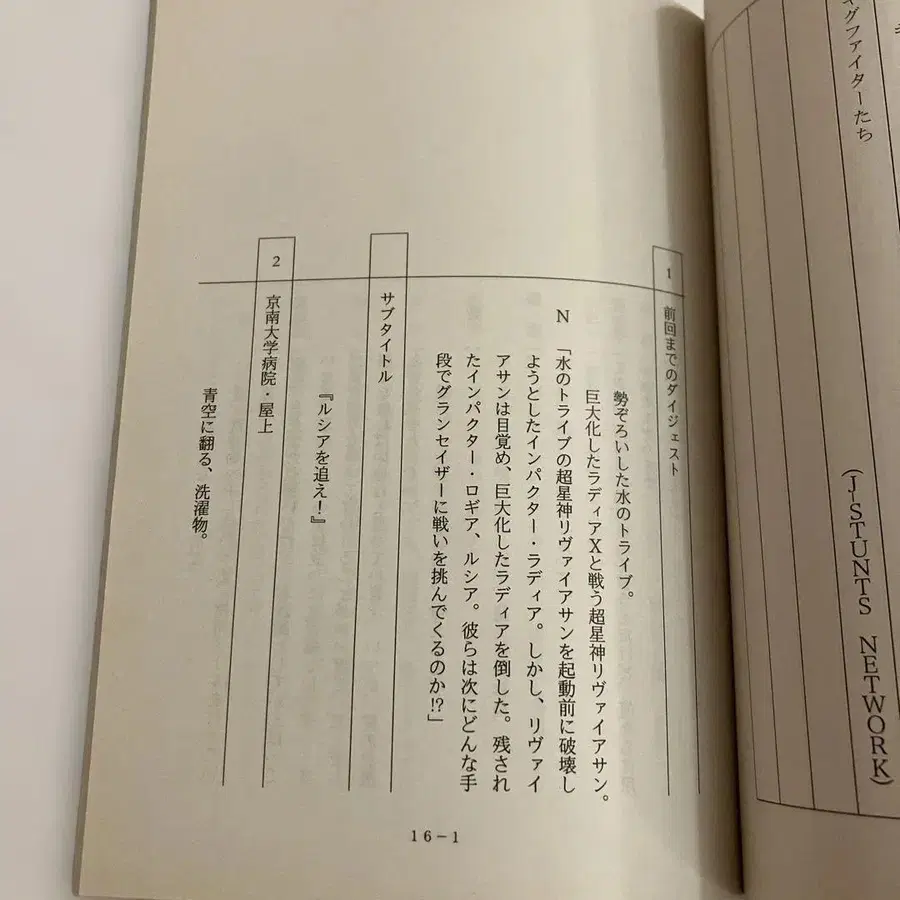 グファイターたち
(JSTUNTS NETWORK)
1 前回までのダイジェスト
勢ぞろいした水のトライブ。
巨大化したラディアXと戦う超星神リヴァイアサン。
N 「水のトライブの超星神リヴァイアサンを起動前に破壊し
ようとしたインパクター・ラディア。しかし、リヴァイ
アサンは目覚め、巨大化したラディアを倒した。残され
たインパクター・ロギア、ルシア。彼らは次にどんな手
段でグランセイザーに戦いを挑んでくるのか!?」
サブタイトル
『ルシアを追え！』
2 京南大学病院・屋上
青空に翻る、洗濯物。
16-1